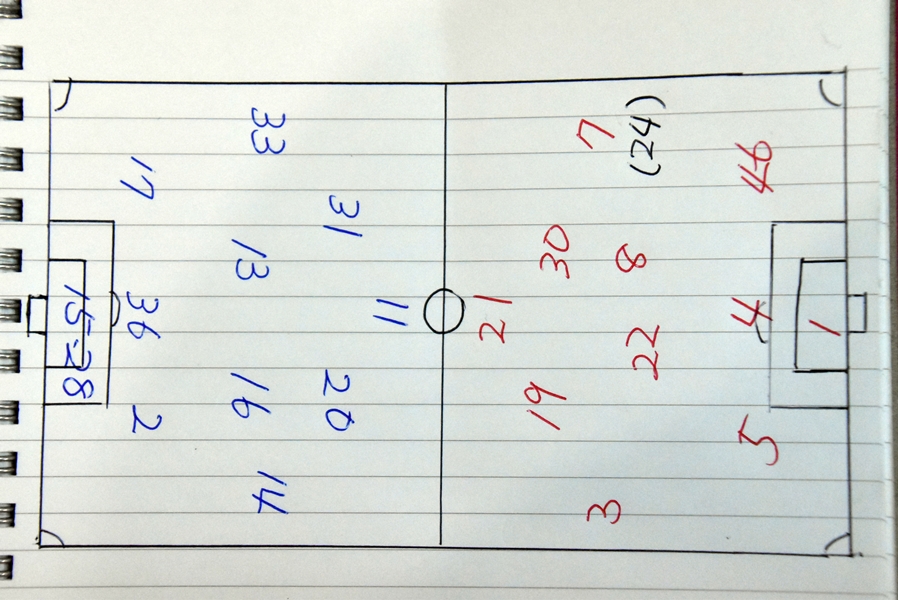 33
17
31
13
11
36
15-28
20
16
2
14
7
(24)
46
30
8
21
4
1
22
19
5
3